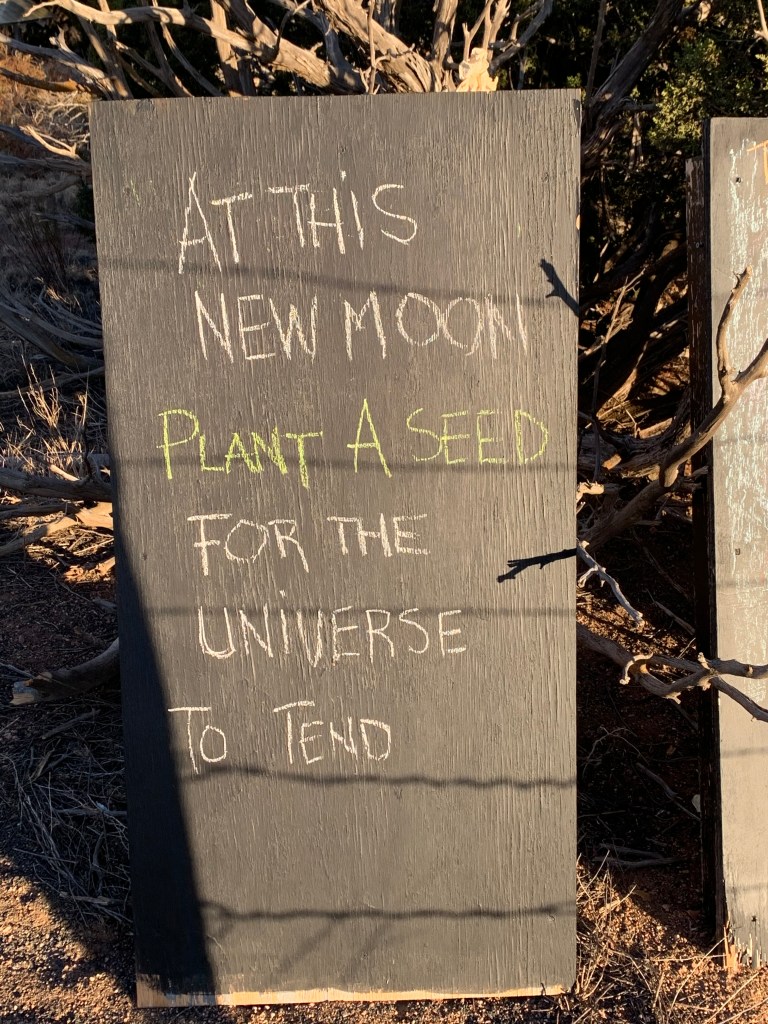 AT THiS
NEW MOON
PLANT A SEED
FOR THE
UNiVERSE
TO TEND